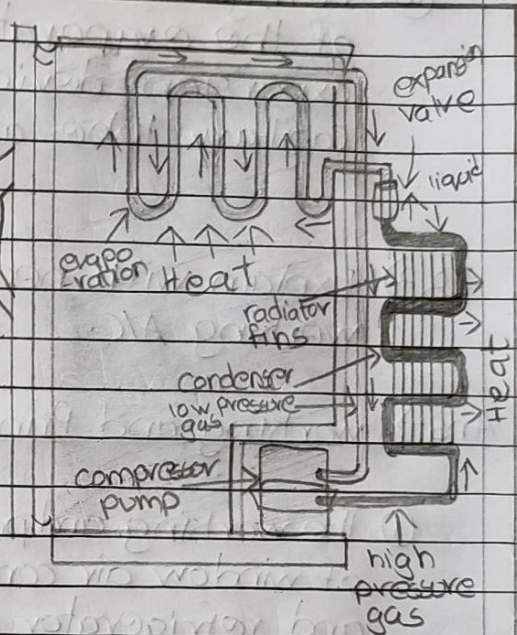 expansion
valve
liquid
evapo
ration
Heat
radiator
fins
condenser
low pressure
gas
Heat
compressor
pump
high
pressure
gas